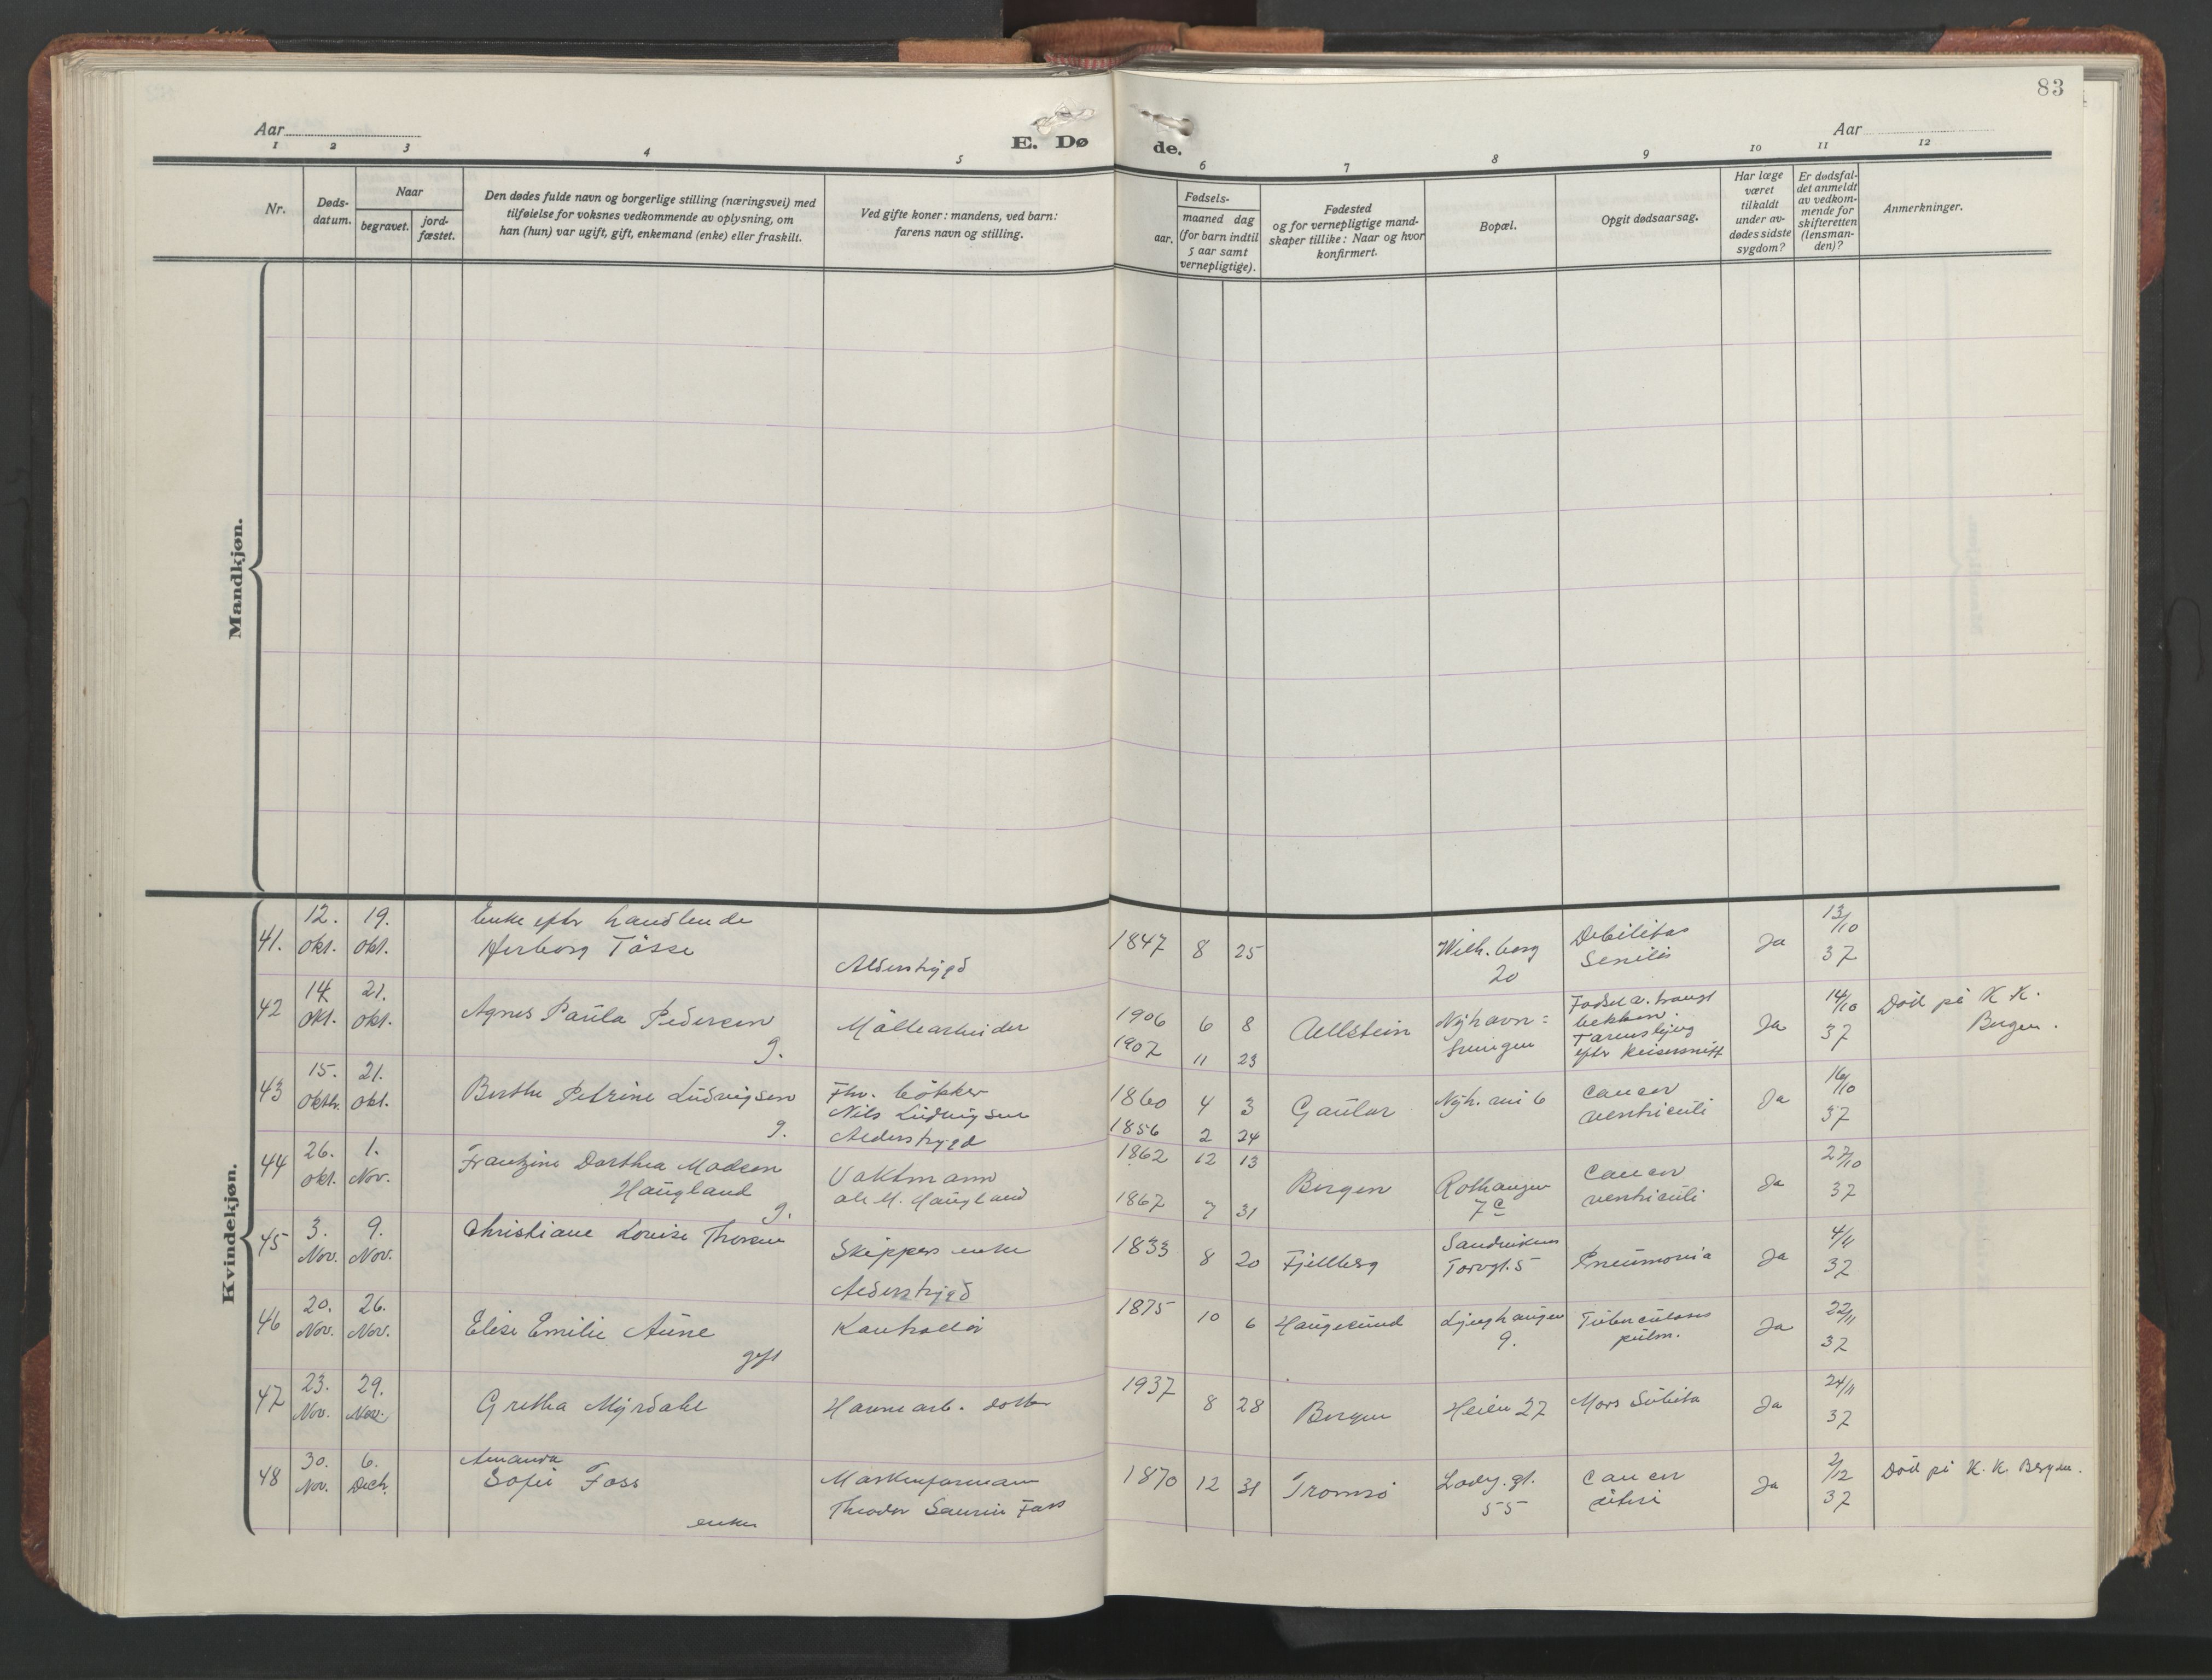 83
Aar
E. Dø de.
Aar
1 2 3 4 5 6 7 8 9 10 11 12
Nr.
Døds-
datum.
Naar
begravet.
jord-
fæstet.
Den dødes fulde navn og borgerlige stilling (næringsvei) med
tilføielse for voksnes vedkommende av oplysning, om
han (hun) var ugift, gift, enkemand (enke) eller fraskilt.
Ved gifte koner: mandens, ved barn:
farens navn og stilling.
Fødsels-
aar.
maaned dag
(for barn indtil
5 aar samt
vernepligtige).
Fødested
og for vernepligtige mand-
skaper tillike: Naar og hvor
konfirmert.
Bopæl.
Opgit dødsaarsag.
Har læge
været
tilkaldt
under av-
dødes sidste
sygdom?
Er dødsfal-
det anmeldt
av vedkom-
mende for
skifteretten
(lensman-
den)?
Anmerkninger.
Mandkjøn.
Kvindekjøn.
41. 12. Okt. 19. Okt.
Enke eftr handlende
Herborg Tösse
Alderstrygd
1847 8 25
Wilh. borg
20
Debilitas
Senilis
Ja
13/10
37
42 14 Okt. 21. Okt.
Agnes Paula Pedersen
g.
Möllearbeider
1906 6 8
1907 11 23
Nyhavn=
svingen
eftr keisersnitt
Ja
14/10
37
Död på K K.
Bergen.
43 15. Oktbr. 21. Okt.
Berthe Petrine Ludvigsen
g.
Fhv. bökker
Nils Ludvigsen
Alderstrygd
1860 4 3
1856 2 24
Gaular
Nyh. vei 6
Cancer
ventriculi
Ja
16/10
37
44 26. Okt. 1. Nov.
Frantzine Dorthea Madsen
Haugland
g.
Vaktmann
Ole M. Haugland
1862 12 13
1867 7 31
Bergen
Rothaugen
7 c
Cancer
ventriculi
Ja
27/10
37
45 3. Nov. 9. Nov.
Christiane Lovise Thorsen
Skippers enke
Alderstrygd
1833 8 20
Fjellberg
Sandvikens
Torvgt. 5
Pneumonia
Ja
4/11
37
46 20. Nov. 26. Nov.
Elise Emilie Aune
gift
Kontrollör
1875 10 6
Haugesund
Ljenghaugen
9.
Tuberculosis
pulm.
Ja
22/11
37
47 23. Nov. 29. Nov.
Gretha Myrdahl
Havnearb. dotter
1937 8 28
Bergen
Heien 27
Mors Subita
Ja
24/11
37
48 30. Nov. 6. Decb.
Amanda
Sofie Foss
enke
Maskinformann
Theodor Severin Foss
1870 12 31
Tromsö
Ladeg. gt.
55
Cancer
uteri
Ja
2/12
37
Död på K. K. Bergen.